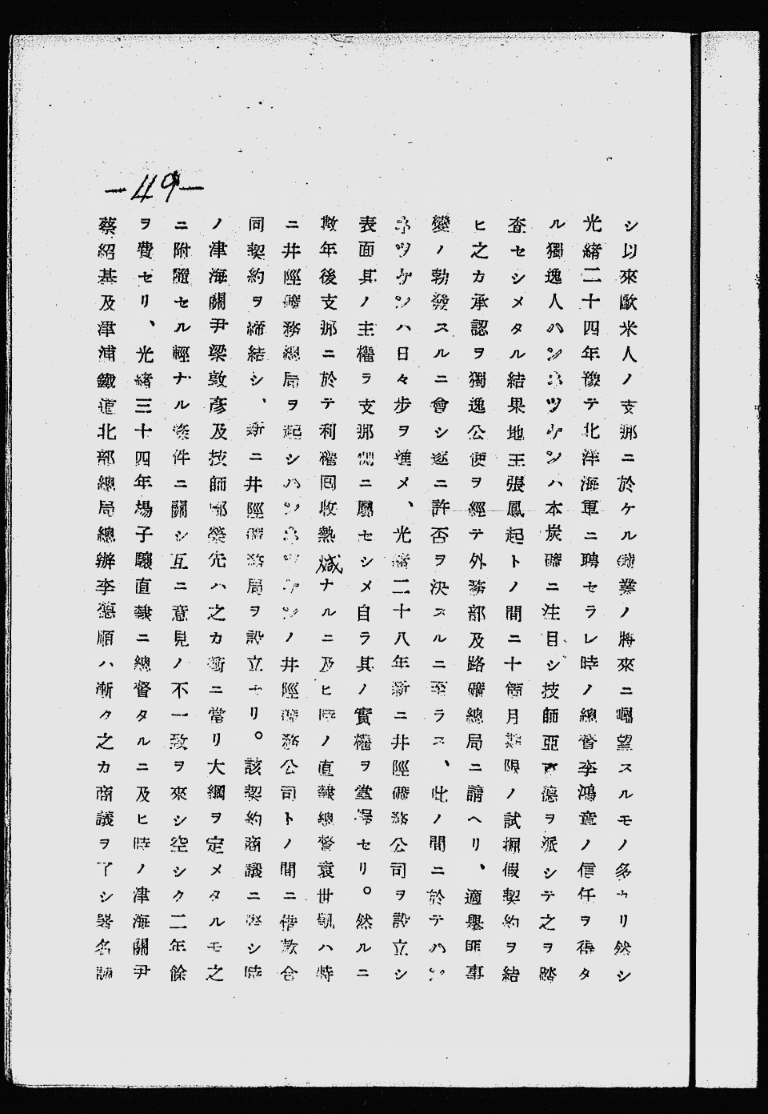 -49-
シ以來歐米人ノ支那ニ於ケル鑛業ノ將來ニ囑望スルモノ多カリ然シ
光緒二十四年豫テ北洋海軍ニ聘セラレ時ノ總督李鴻章ノ信任ヲ得タ
ル獨逸人ハンネツケンハ本炭礦ニ注目シ技師亞 德ヲ派シテ之ヲ踏
査セシメタル結果地主張鳳起トノ間ニ十箇月期限ノ試掘假契約ヲ結
ヒ之カ承認ヲ獨逸公使ヲ經テ外務部及路礦總局ニ請ヘリ、適團匪事
變ノ勃發スルニ會シ遂ニ許否ヲ決スルニ至ラス、此ノ間ニ於テハン
ネツケンハ日々步ヲ進メ、光緒二十八年新ニ井陘礦務公司ヲ設立シ
表面其ノ主權ヲ支那側ニ屬セシメ自ラ其ノ實權ヲ掌握セリ。然ルニ
數年後支那ニ於テ利權回收熱熾ナルニ及ヒ時ノ直隷總督袁世凱ハ特
ニ井陘礦務總局ヲ起シハンネツケンノ井陘礦務公司トノ間ニ借款合
同契約ヲ締結シ、新ニ井陘礦務局ヲ設立セリ。該契約商議ニ際シ時
ノ津海關尹梁敦彦及技師鄺榮光ハ之カ衝ニ當リ大綱ヲ定メタルモ之
ニ附隨セル輕ナル條件ニ關シ互ニ意見ノ不一致ヲ來シ空シク二年餘
ヲ費セリ、光緒三十四年楊子驤直隷ニ總督タルニ及ヒ時ノ津海關尹
蔡紹基及津浦鐵道北部總局總辦李德順ハ漸ク之カ商議ヲ了シ署名調